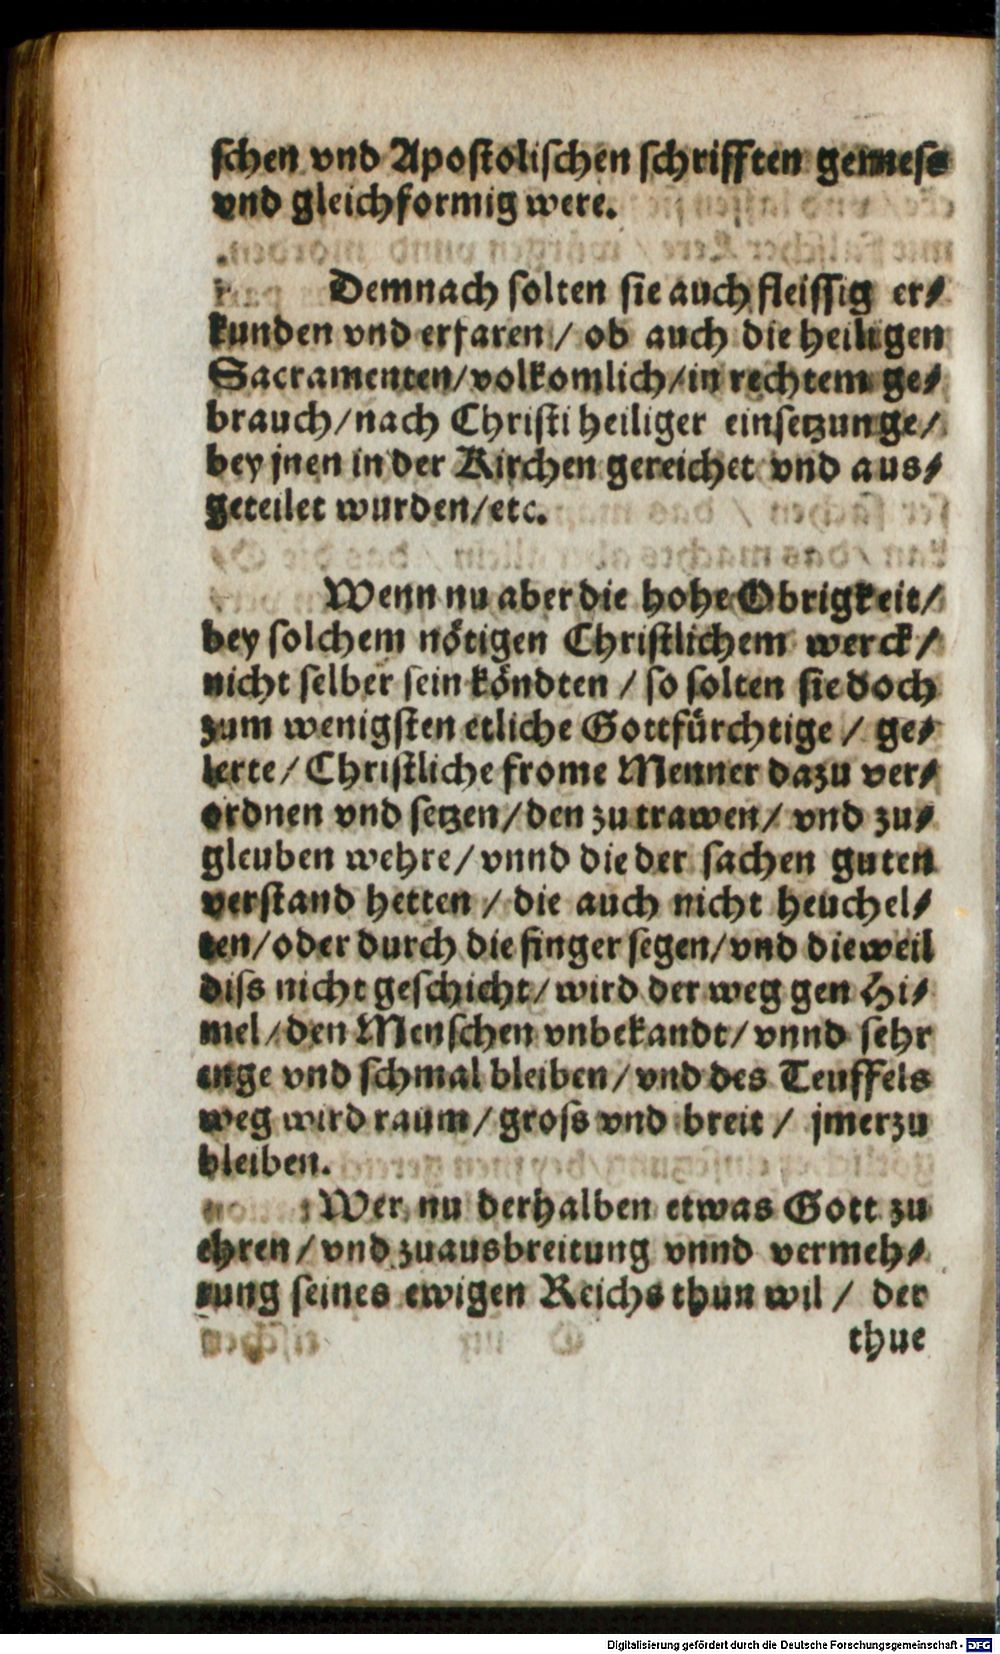 schen vnd Apostolischen schrifften gemess
vnd gleichformig were.
Demnach solten sie auch fleissig er⸗
kunden vnd erfaren / ob auch die heiligen
Sacramenten/volkomlich/in rechtem ge⸗
brauch/nach Christi heiliger einsetzunge/
bey jnen in der Kirchen gereichet vnd aus⸗
geteilet wurden/etc.
Wenn nu aber die hohe Obrigkeit/
bey solchem nötigen Christlichem werck/
nicht selber sein köndten / so solten sie doch
zum wenigsten etliche Gottfürchtige / ge⸗
lerte/Christliche frome Menner dazu ver⸗
ordnen vnd setzen/den zu trawen/ vnd zu⸗
gleuben wehre/vnnd die der sachen guten
verstand hetten / die auch nicht heuchel⸗
ten/oder durch die finger segen/vnd dieweil
diss nicht geschicht/wird der weg gen Hi⸗
mel/den Menschen vnbekandt/vnnd sehr
enge vnd schmal bleiben/vnd des Teuffels
weg wird raum/gross vnd breit / jmerzu
bleiben.
Wer nu derhalben etwas Gott zu
ehren/vnd zuausbreitung vnnd vermeh⸗
rung seines ewigen Reichs thun wil / der
thue
Digitalisierung gefördert durch die Deutsche Forschungsgemeinschaft - DFG